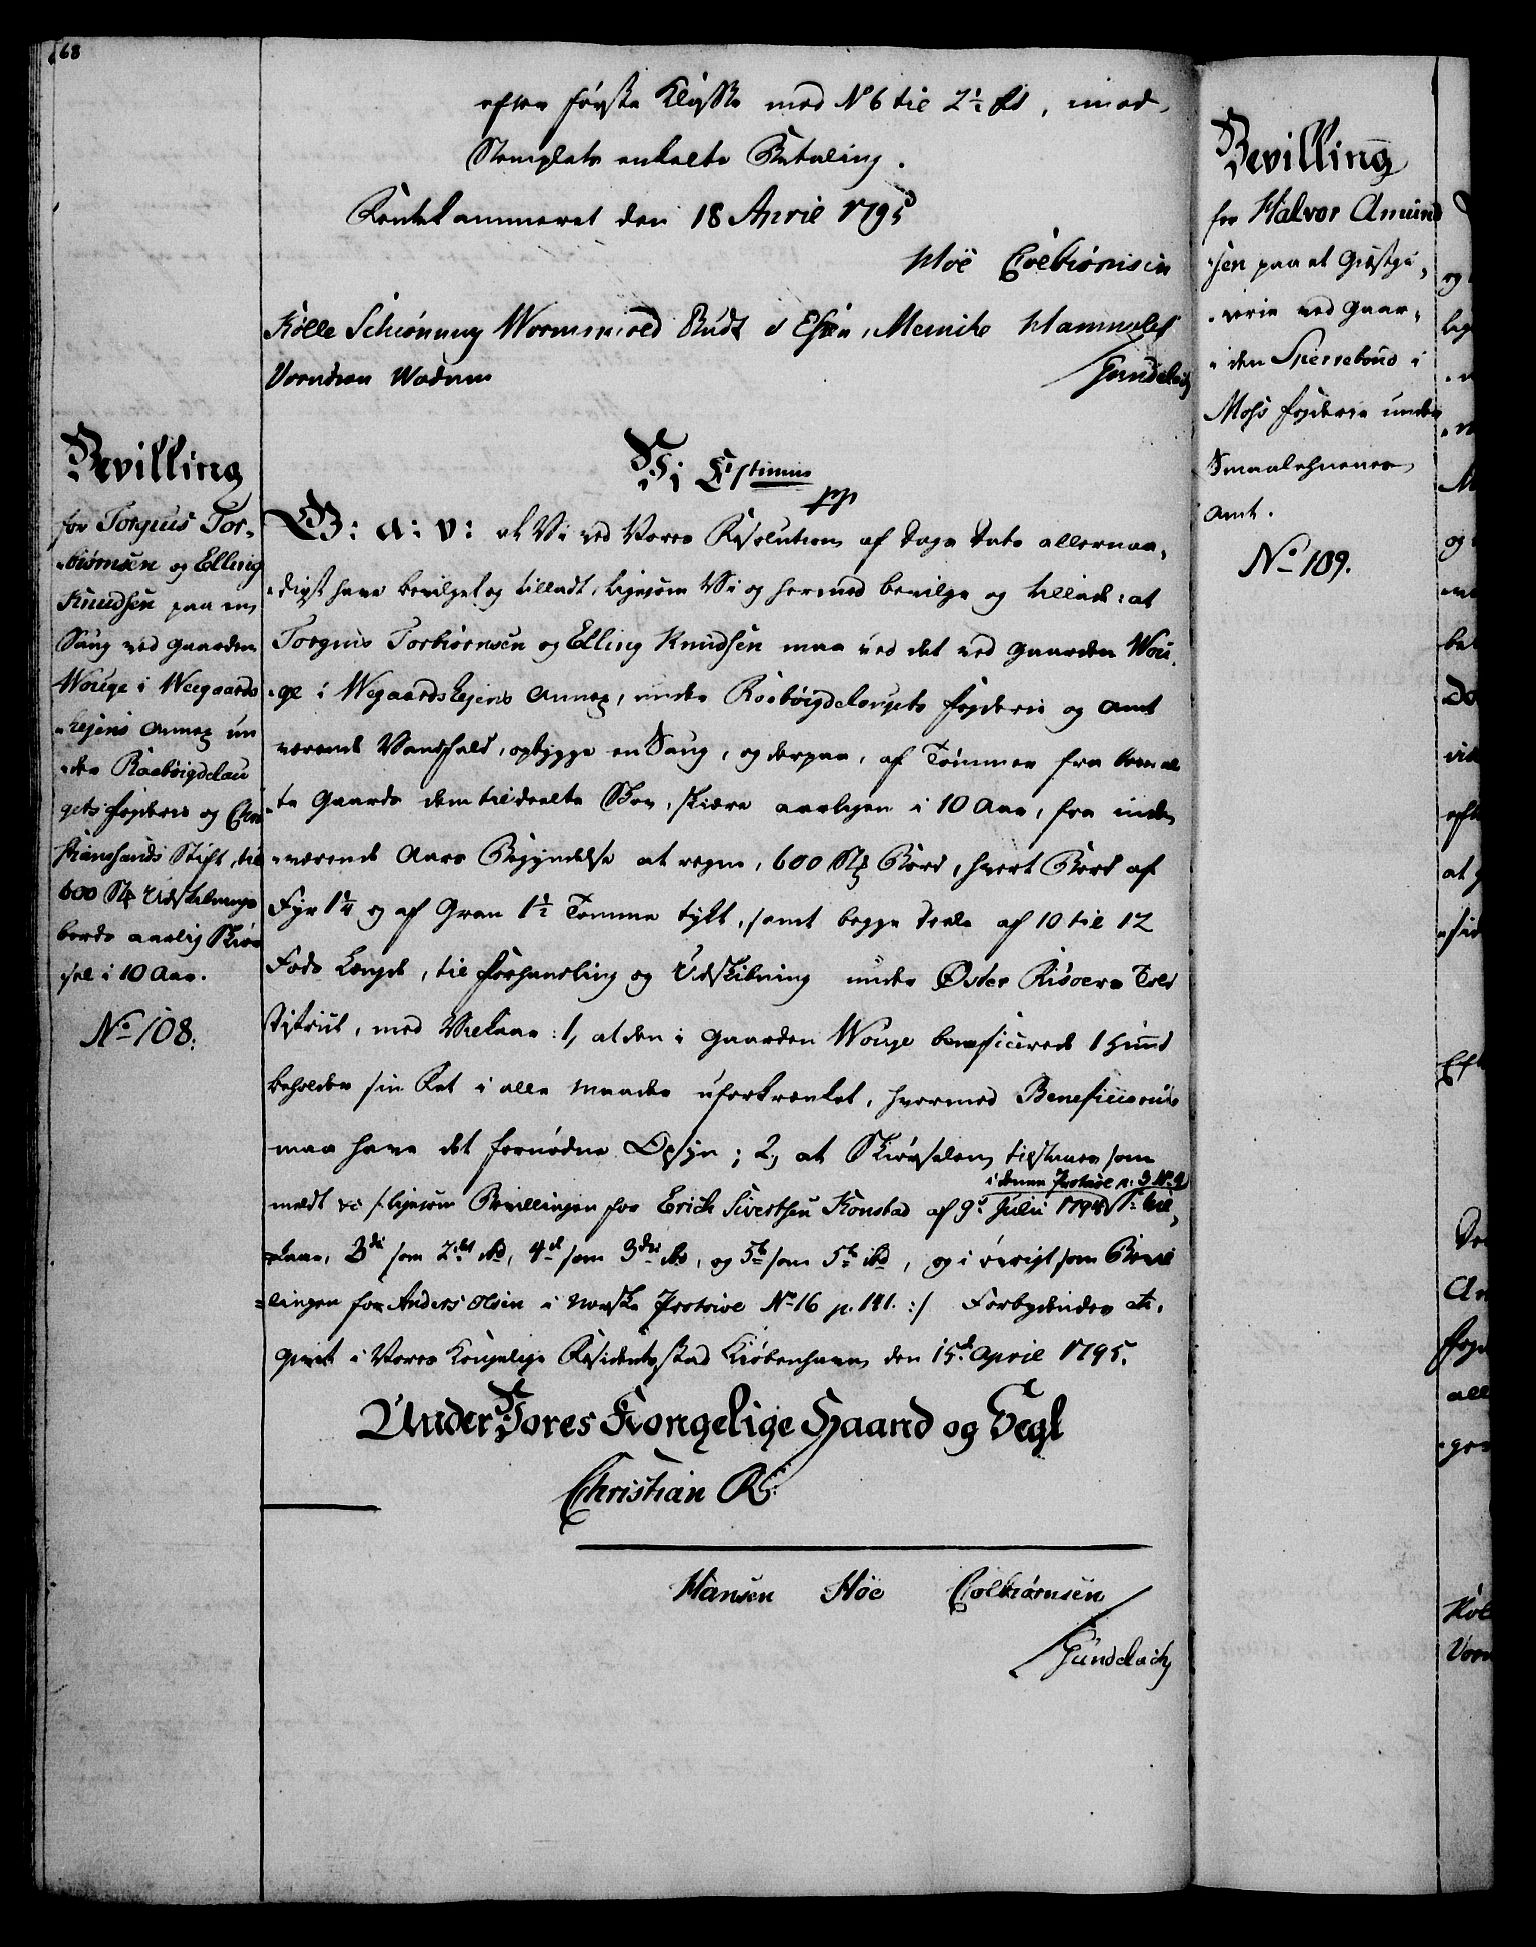 68
efter første Klasse med No 6 til 2½ rd, imod
Stemplets enkelte Betaling.
Rentekammeret den 18 April 1795
Høe Colbiørnsen
Kølle Schiønning Wormskiold Rudt Essen, Meinike Hammeleff
Voendsen Wadum
Gundelach
Bevilling
for Torgius Tor-
-biørnsen og Elling
Knudsen paa en
Saug ved Gaarden
Wouge i Weegaards
-hejens Annex un
-der Raabøigdelau
gets Fogderie og Chri
stiansands Stift, til
600 Stk Udskibnings
bords aarlig Skiør
sel i 10 Aar.
No 108.
Vi Cristian
pp
G: A: V: at Vi ved Vores Resolution af Dags Dato allernaa-
-digst have bevilget og tilladt, ligesom Vi og hermed bevilge og tillade: at
Torguis Torbiørnsen og Elling Knudsen maa ved det ved Gaarden Wou-
-ge i Wegaardshejens Annex, under Raabøigdelaugets Fogderie og Amt
værende Vandfald, opbygge en Saug, og derpaa, af Tømmer fra bemel
-te Gaards dem tildeelte Skov, skiære aarligen i 10 Aar, fra inde
-værende Aars Begyndelse at regne, 600 Stk Bord, hvert Bord af
Fyr 1¼ og af Gran 1½ Tomme tykt, samt begge Deele af 10 til 12
Fods Længde, til Forhandling og Udskibning under Øster Riisøers Told
District, med Vilkaar: 1, at den i Gaarden Wouge beneficerede 1 Hud
beholder sin Ret i alle Maader uforkrænket, hvormed Beneficiarius
maa have det fornødne Opsyn; 2, at Skiørselen tilstaaes som
i denne Protocol p: 3 No 2
meldt &c /: ligesom Bevillingen for Erich Sivertsen Konstad af 9de Julii 1794 1ste Vil-
kaar, 3die som 2det ibd, 4de som 3die ibd, og 5te som 5te ibd, og i øvrigt som Bevil
-lingen for Anders Olsen i Norske Protocol No 16 p. 141. :/ Forbydendes &c.
Givet i Vores Kongelige Residentzstad Kiøbenhavn den 15de April 1795.
Under Vores Kongelige Haand og Segl
Christian R.
Hansen Høe Colbiørnsen
Gundelach
Bevilling
for Halvor Amund
-sen paa et Giæstgi-
-verie ved Gaar-
-den Sperrebond i
Moss Fogderie under
Smaalehnenes
Amt.
No 109.